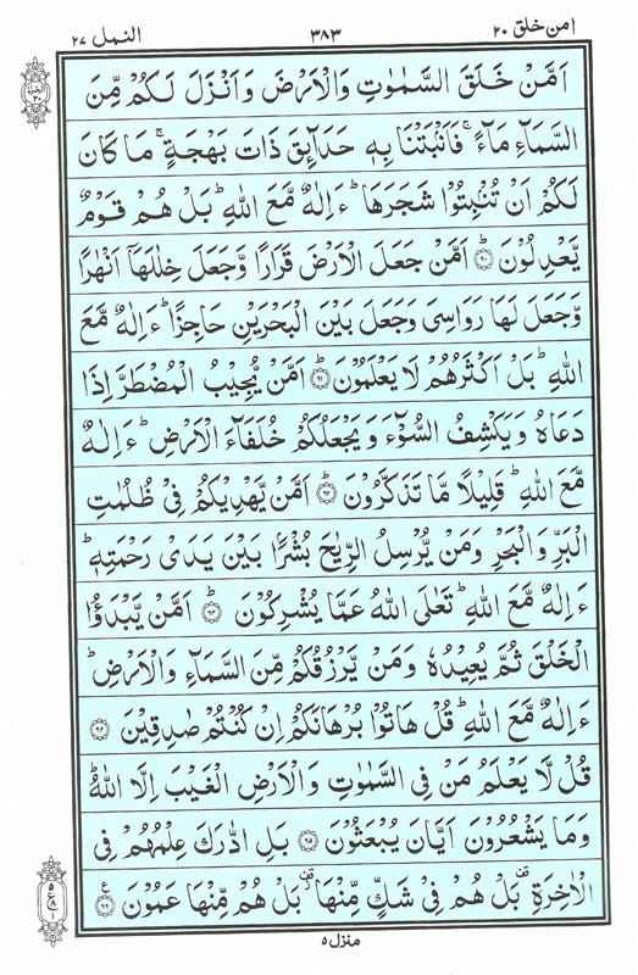 امن خلق ٢٠
٣٨٣
النمل ٢٧
اَمَّنْ خَلَقَ السَّمٰوٰتِ وَالْاَرْضَ وَاَنْزَلَ لَكُمْ مِّنَ
السَّمَآءِ مَآءً ۚ فَاَنْۢبَتْنَا بِهٖ حَدَآئِقَ ذَاتَ بَهْجَةٍ ۚ مَا كَانَ
لَكُمْ اَنْ تُنْۢبِتُوْا شَجَرَهَا ؕ ءَاِلٰهٌ مَّعَ اللّٰهِ ؕ بَلْ هُمْ قَوْمٌ
يَّعْدِلُوْنَ ؕ‏﴿۶۰﴾ اَمَّنْ جَعَلَ الْاَرْضَ قَرَارًا وَّجَعَلَ خِلٰلَهَاۤ اَنْهٰرًا
وَّجَعَلَ لَهَا رَوَاسِىَ وَجَعَلَ بَيْنَ الْبَحْرَيْنِ حَاجِزًا ؕ ءَاِلٰهٌ مَّعَ
اللّٰهِ ؕ بَلْ اَكْثَرُهُمْ لَا يَعْلَمُوْنَ ؕ‏﴿۶۱﴾ اَمَّنْ يُّجِيْبُ الْمُضْطَرَّ اِذَا
دَعَاهُ وَيَكْشِفُ السُّوْٓءَ وَيَجْعَلُكُمْ خُلَفَآءَ الْاَرْضِ ؕ ءَاِلٰهٌ
مَّعَ اللّٰهِ ؕ قَلِيْلًا مَّا تَذَكَّرُوْنَ ؕ‏﴿۶۲﴾ اَمَّنْ يَّهْدِيْكُمْ فِىْ ظُلُمٰتِ
الْبَرِّ وَالْبَحْرِ وَمَنْ يُّرْسِلُ الرِّيٰحَ بُشْرًۢا بَيْنَ يَدَىْ رَحْمَتِهٖ ؕ
ءَاِلٰهٌ مَّعَ اللّٰهِ ؕ تَعٰلَى اللّٰهُ عَمَّا يُشْرِكُوْنَ ؕ‏﴿۶۳﴾ اَمَّنْ يَّبْدَؤُا
الْخَلْقَ ثُمَّ يُعِيْدُهٗ وَمَنْ يَّرْزُقُكُمْ مِّنَ السَّمَآءِ وَالْاَرْضِ ؕ
ءَاِلٰهٌ مَّعَ اللّٰهِ ؕ قُلْ هَاتُوْا بُرْهَانَكُمْ اِنْ كُنْتُمْ صٰدِقِيْنَ ‏﴿۶۴﴾
قُلْ لَّا يَعْلَمُ مَنْ فِى السَّمٰوٰتِ وَالْاَرْضِ الْغَيْبَ اِلَّا اللّٰهُ ؕ
وَمَا يَشْعُرُوْنَ اَيَّانَ يُبْعَثُوْنَ ‏﴿۶۵﴾ بَلِ ادّٰرَكَ عِلْمُهُمْ فِى
الْاٰخِرَةِ ۫ بَلْ هُمْ فِىْ شَكٍّ مِّنْهَا ۫ بَلْ هُمْ مِّنْهَا عَمُوْنَ ‏﴿۶۶﴾
منزل ٥